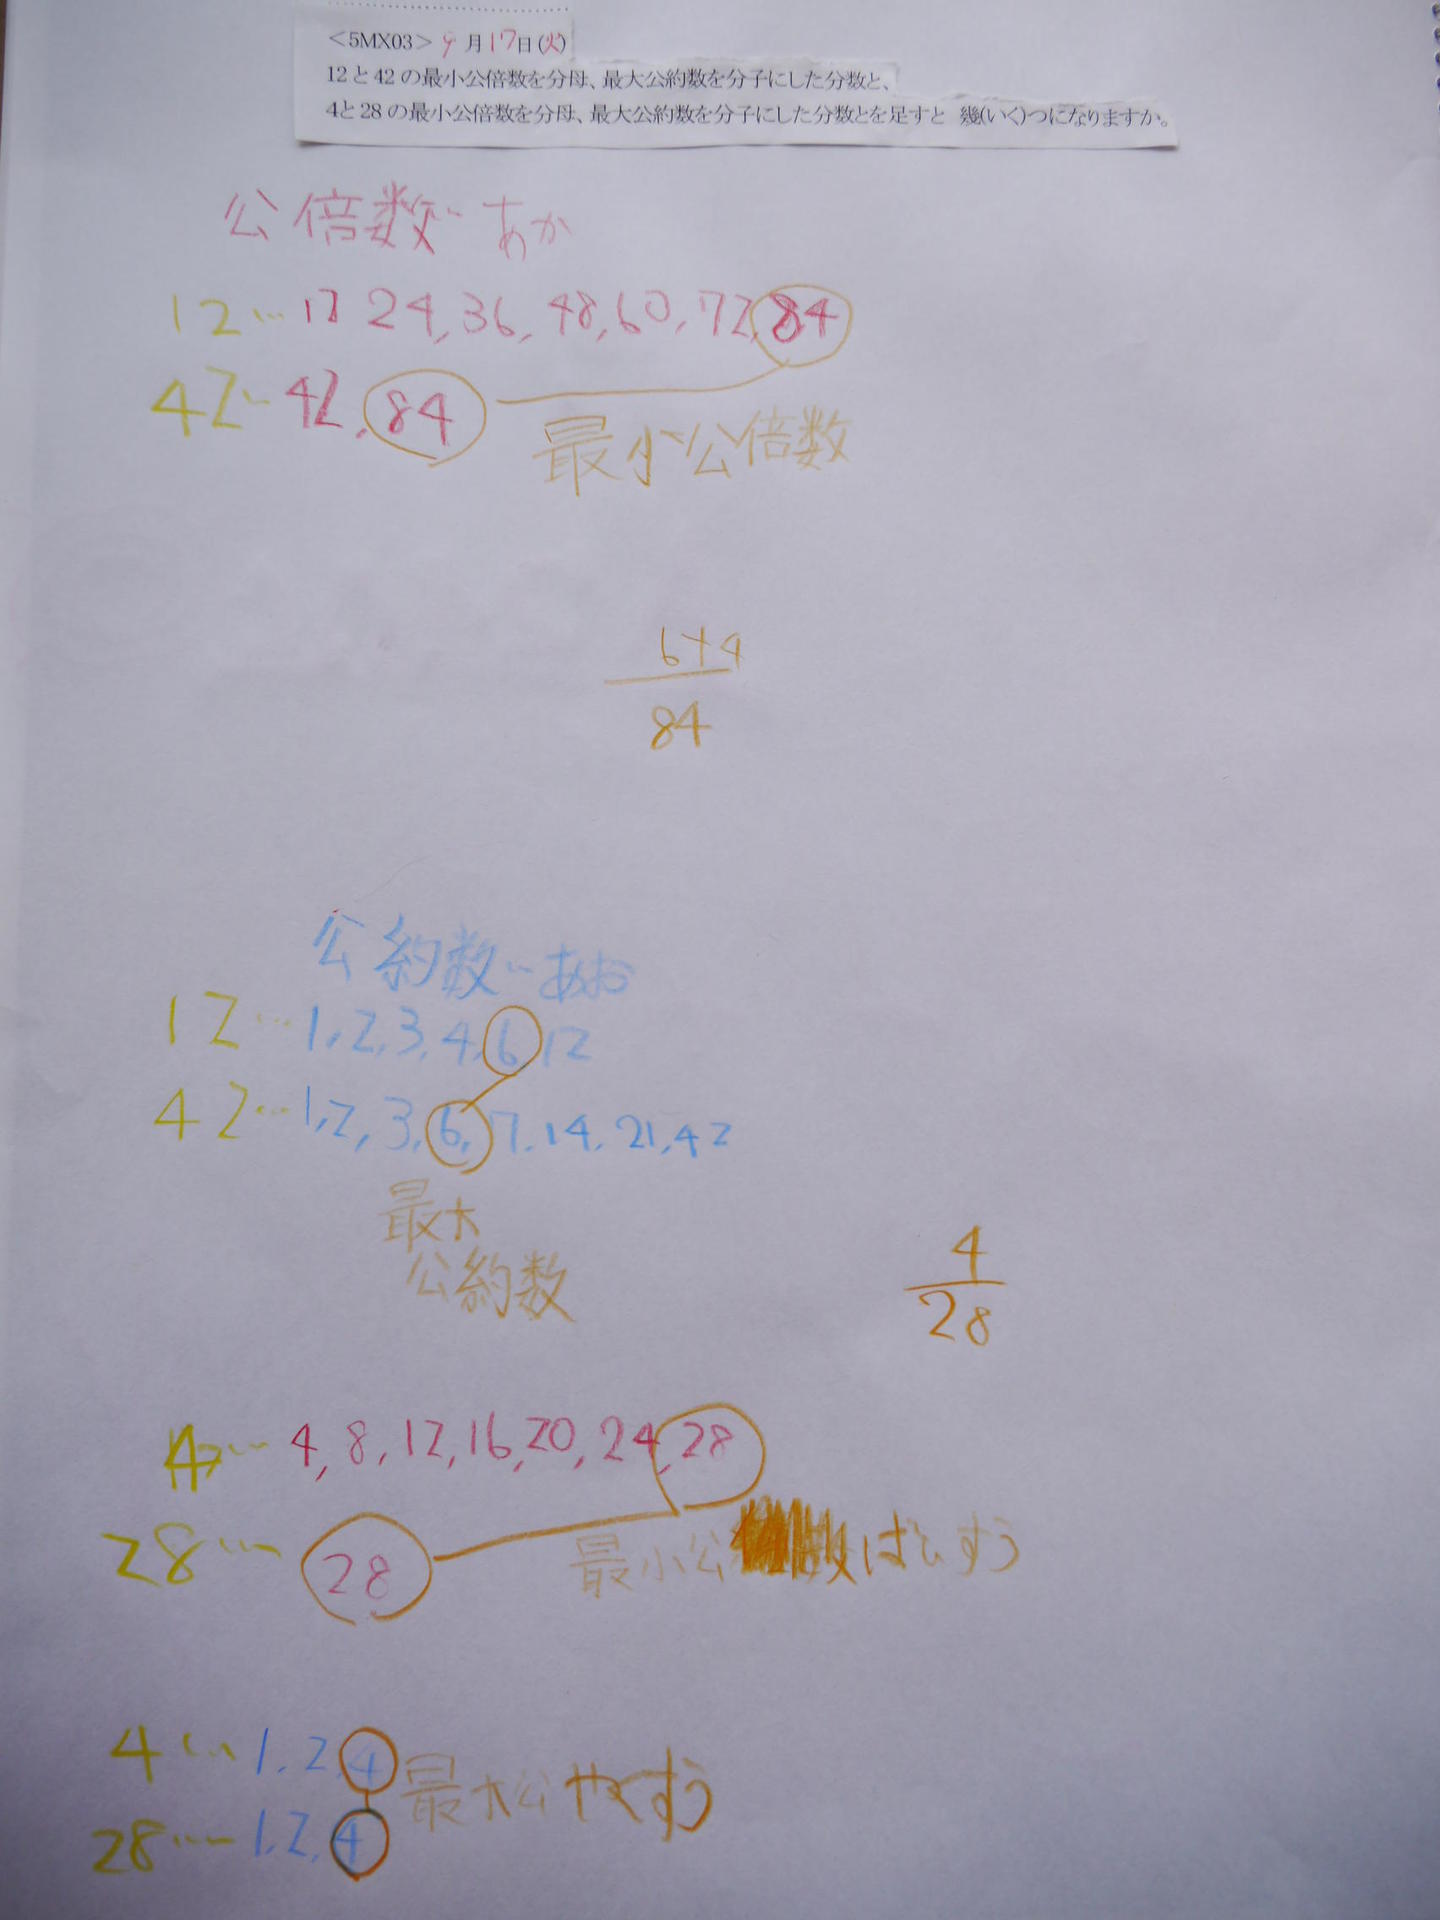 <5MX03> 9月17日(火)
12と42の最小公倍数を分母、最大公約数を分子にした分数と、
4と28の最小公倍数を分母、最大公約数を分子にした分数とを足すと 幾(いく)つになりますか。
公倍数…あか
12… 12 24,36,48,60,72,84
42… 42,84
最小公倍数
6+4
84
公約数…あお
12…1,2,3,4,6,12
42…1,2,3,6,7,14,21,42
最大
公約数
4
28
4… 4,8,12,16,20,24,28
28… 28
最小公 ばいすう
4… 1,2,4
最大公やくすう
28… 1,2,4